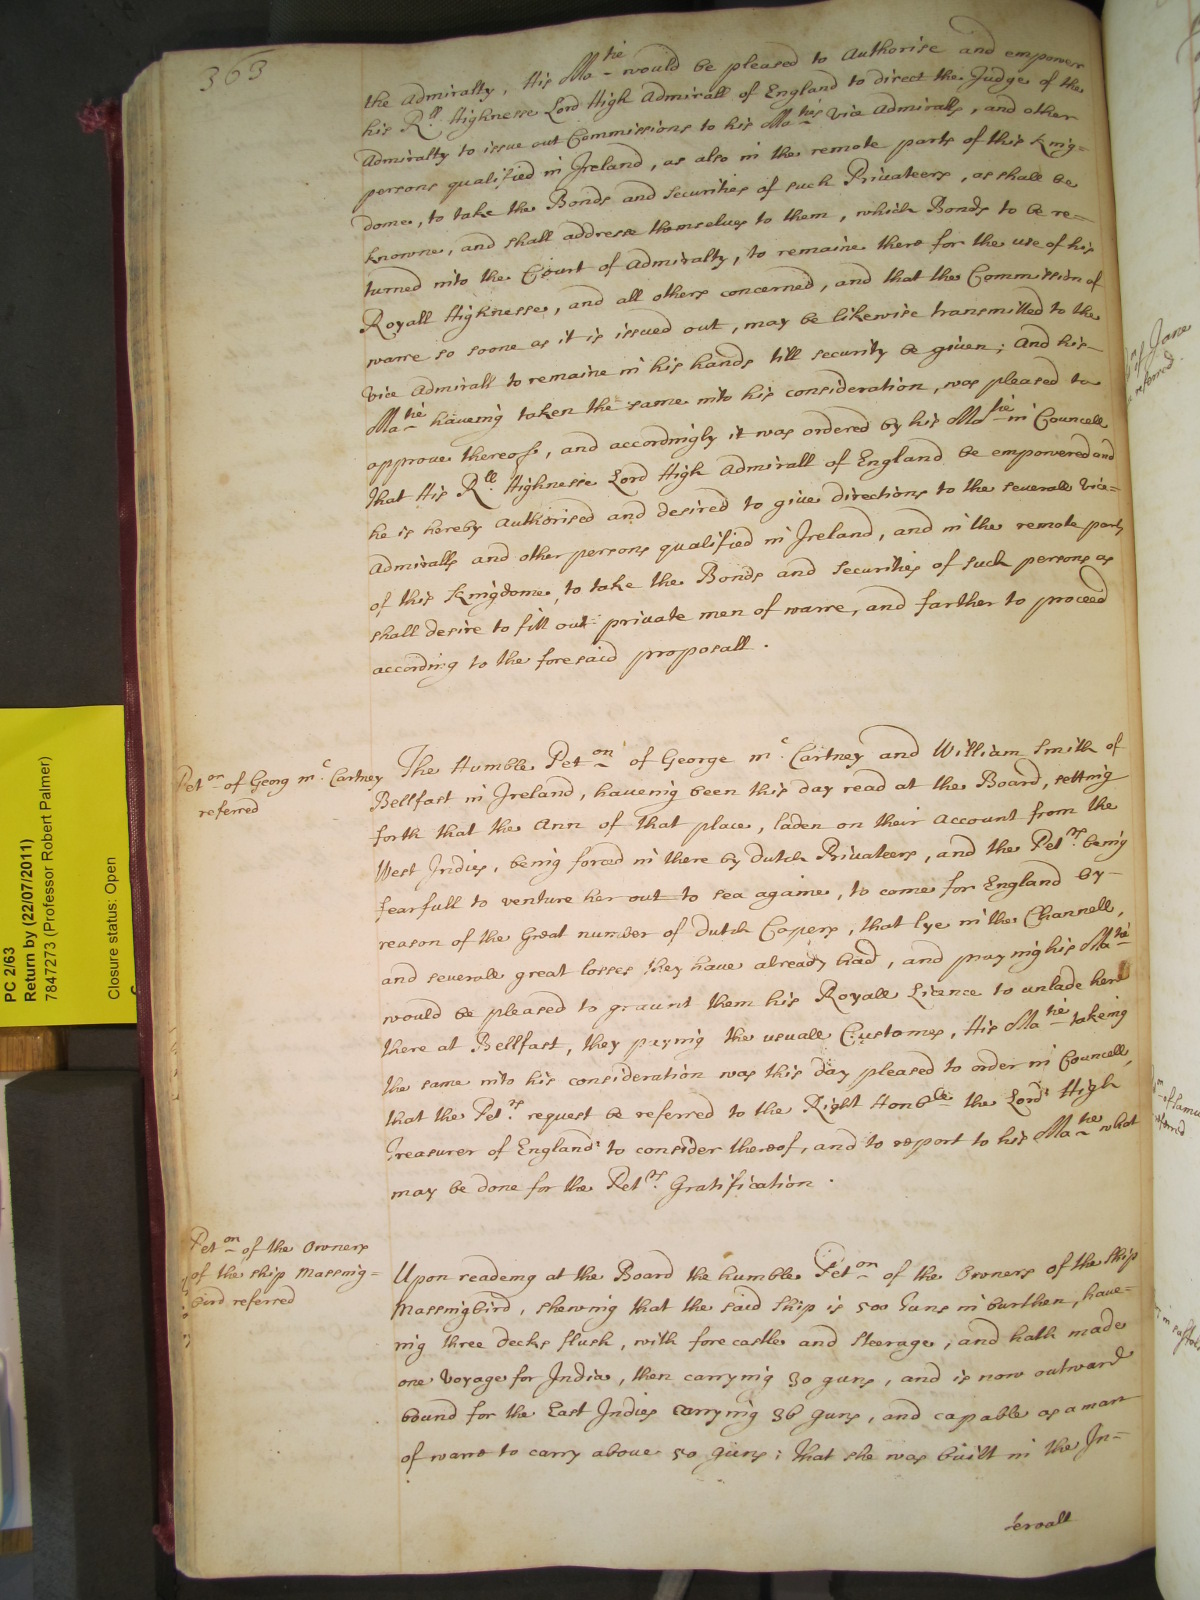 363
the Admiralty, His Ma^tie would be pleased to Authorise and empower
his R^ll Highnesse Lord High Admirall of England to direct the Judge of the
Admiralty to issue out Commissions to his Ma^ties Vice Admiralls, and other
persons qualified in Ireland, as also in the remote parts of this King=
dome, to take the Bonds and Securities of such Privateers, as shall be
knowne, and shall addresse themselves to them, which Bonds to be re=
turned into the Court of Admiralty, to remaine there for the use of his
Royall Highnesse, and all others concerned, and that the Commission of
warre so soone as it is issued out, may be likewise transmitted to the
Vice Admirall to remaine in his hands till security be given; And his
Ma^tie haveing taken the same into his consideration, was pleased to
approve thereof, and accordingly it was ordered by his Ma^tie in Councell
that His R^ll Highnesse Lord High Admirall of England be empowered and
he is hereby Authorised and desired to give directions to the severall Vice=
Admiralls and other persons qualified in Ireland, and in the remote parts
of this Kingdome, to take the Bonds and Securities of such persons as
shall desire to fitt out private men of warre, and farther to proceed
according to the foresaid proposall.
Pet^on of Georg m^c Cartney
referred
The Humble Pet^on of George m^c Cartney and William Smith of
Bellfast in Ireland, haveing been this day read at the Board, setting
forth that the Ann of that place, laden on their Account from the
West Indies, being forced in there by Dutch Privateers, and the Pet^rs being
fearfull to venture her out to sea againe, to come for England by
reason of the Great number of Dutch Capers, that lye in the Channell,
and severall great losses they have already had, and praying his Ma^tie
would be pleased to graunt them his Royall Licence to unlade here
there at Bellfast, they paying the usuall Customes, His Ma^tie takeing
the same into his consideration was this day pleased to order in Councell,
that the Pet^rs request be referred to the Right Hon^ble the Lord High
Treasurer of England to consider thereof, and to report to his Ma^tie what
may be done for the Pet^rs Gratification.
Pet^on of the Owners
of the ship Massing=
bird referred
Upon readeing at the Board the humble Pet^on of the Owners of the Ship
Massingbird, shewing that the said Ship is 500 Tuns in burthen, have=
ing three decks flush, with forecastle and Steerage, and hath made
one Voyage for India, then carrying 30 guns, and is now outward
bound for the East Indies carrying 36 guns, and capable as a man
of warre to carry above 50 guns; that she was built in the In=
tervall
PC 2/63
Return by (22/07/2011)
7847273 (Professor Robert Palmer)
Closure status: Open
of Jane
referred